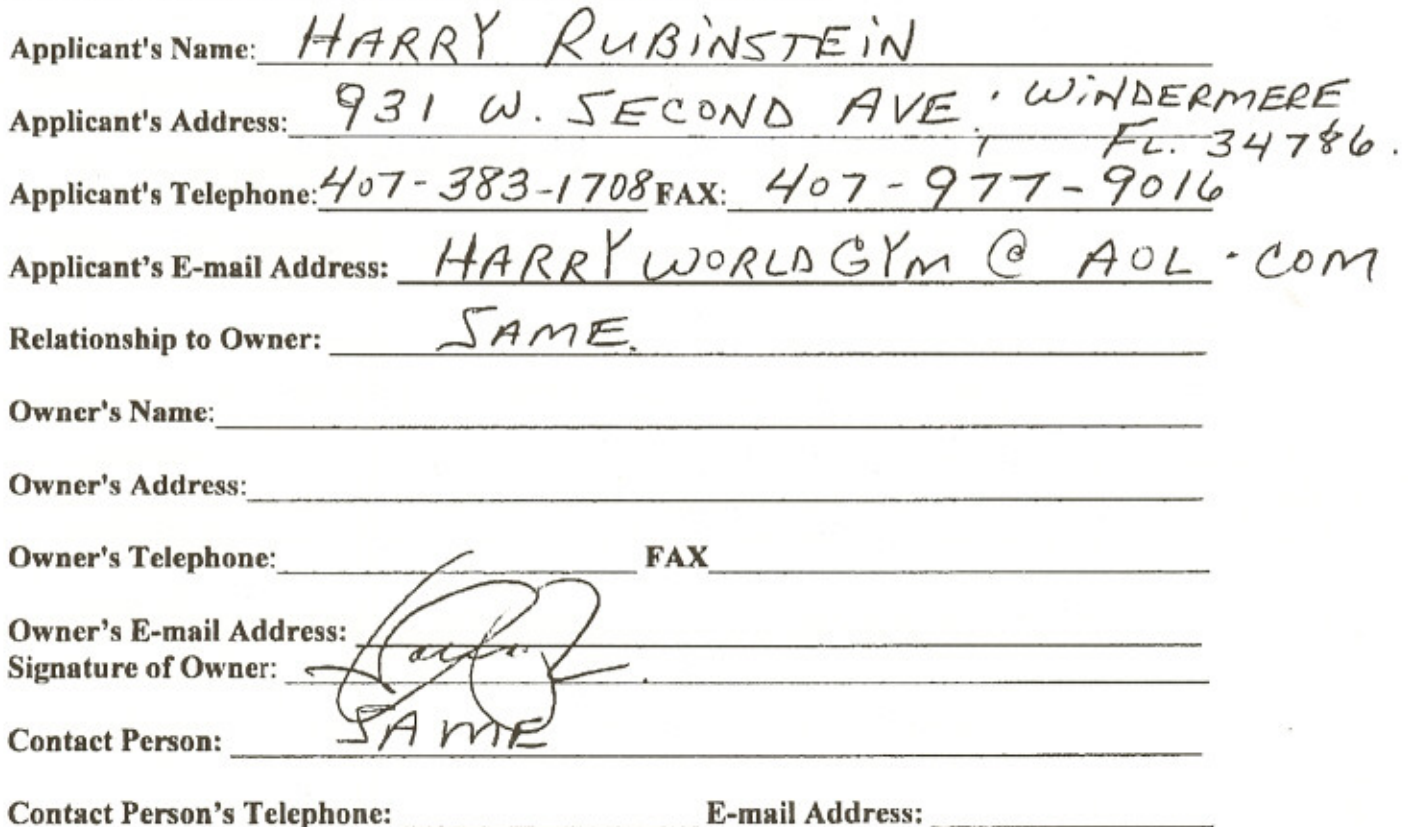 Applicant's Name: HARRY RUBINSTEIN
Applicant's Address: 931 W. SECOND AVE, WINDERMERE
FL. 34786.
Applicant's Telephone: 407-383-1708 FAX: 407-977-9016
Applicant's E-mail Address: HARRYWORLDGYM@AOL.COM
Relationship to Owner: SAME.
Owner's Name:
Owner's Address:
Owner's Telephone: FAX
Owner's E-mail Address:
Signature of Owner:
Contact Person: SAME
Contact Person's Telephone: E-mail Address: